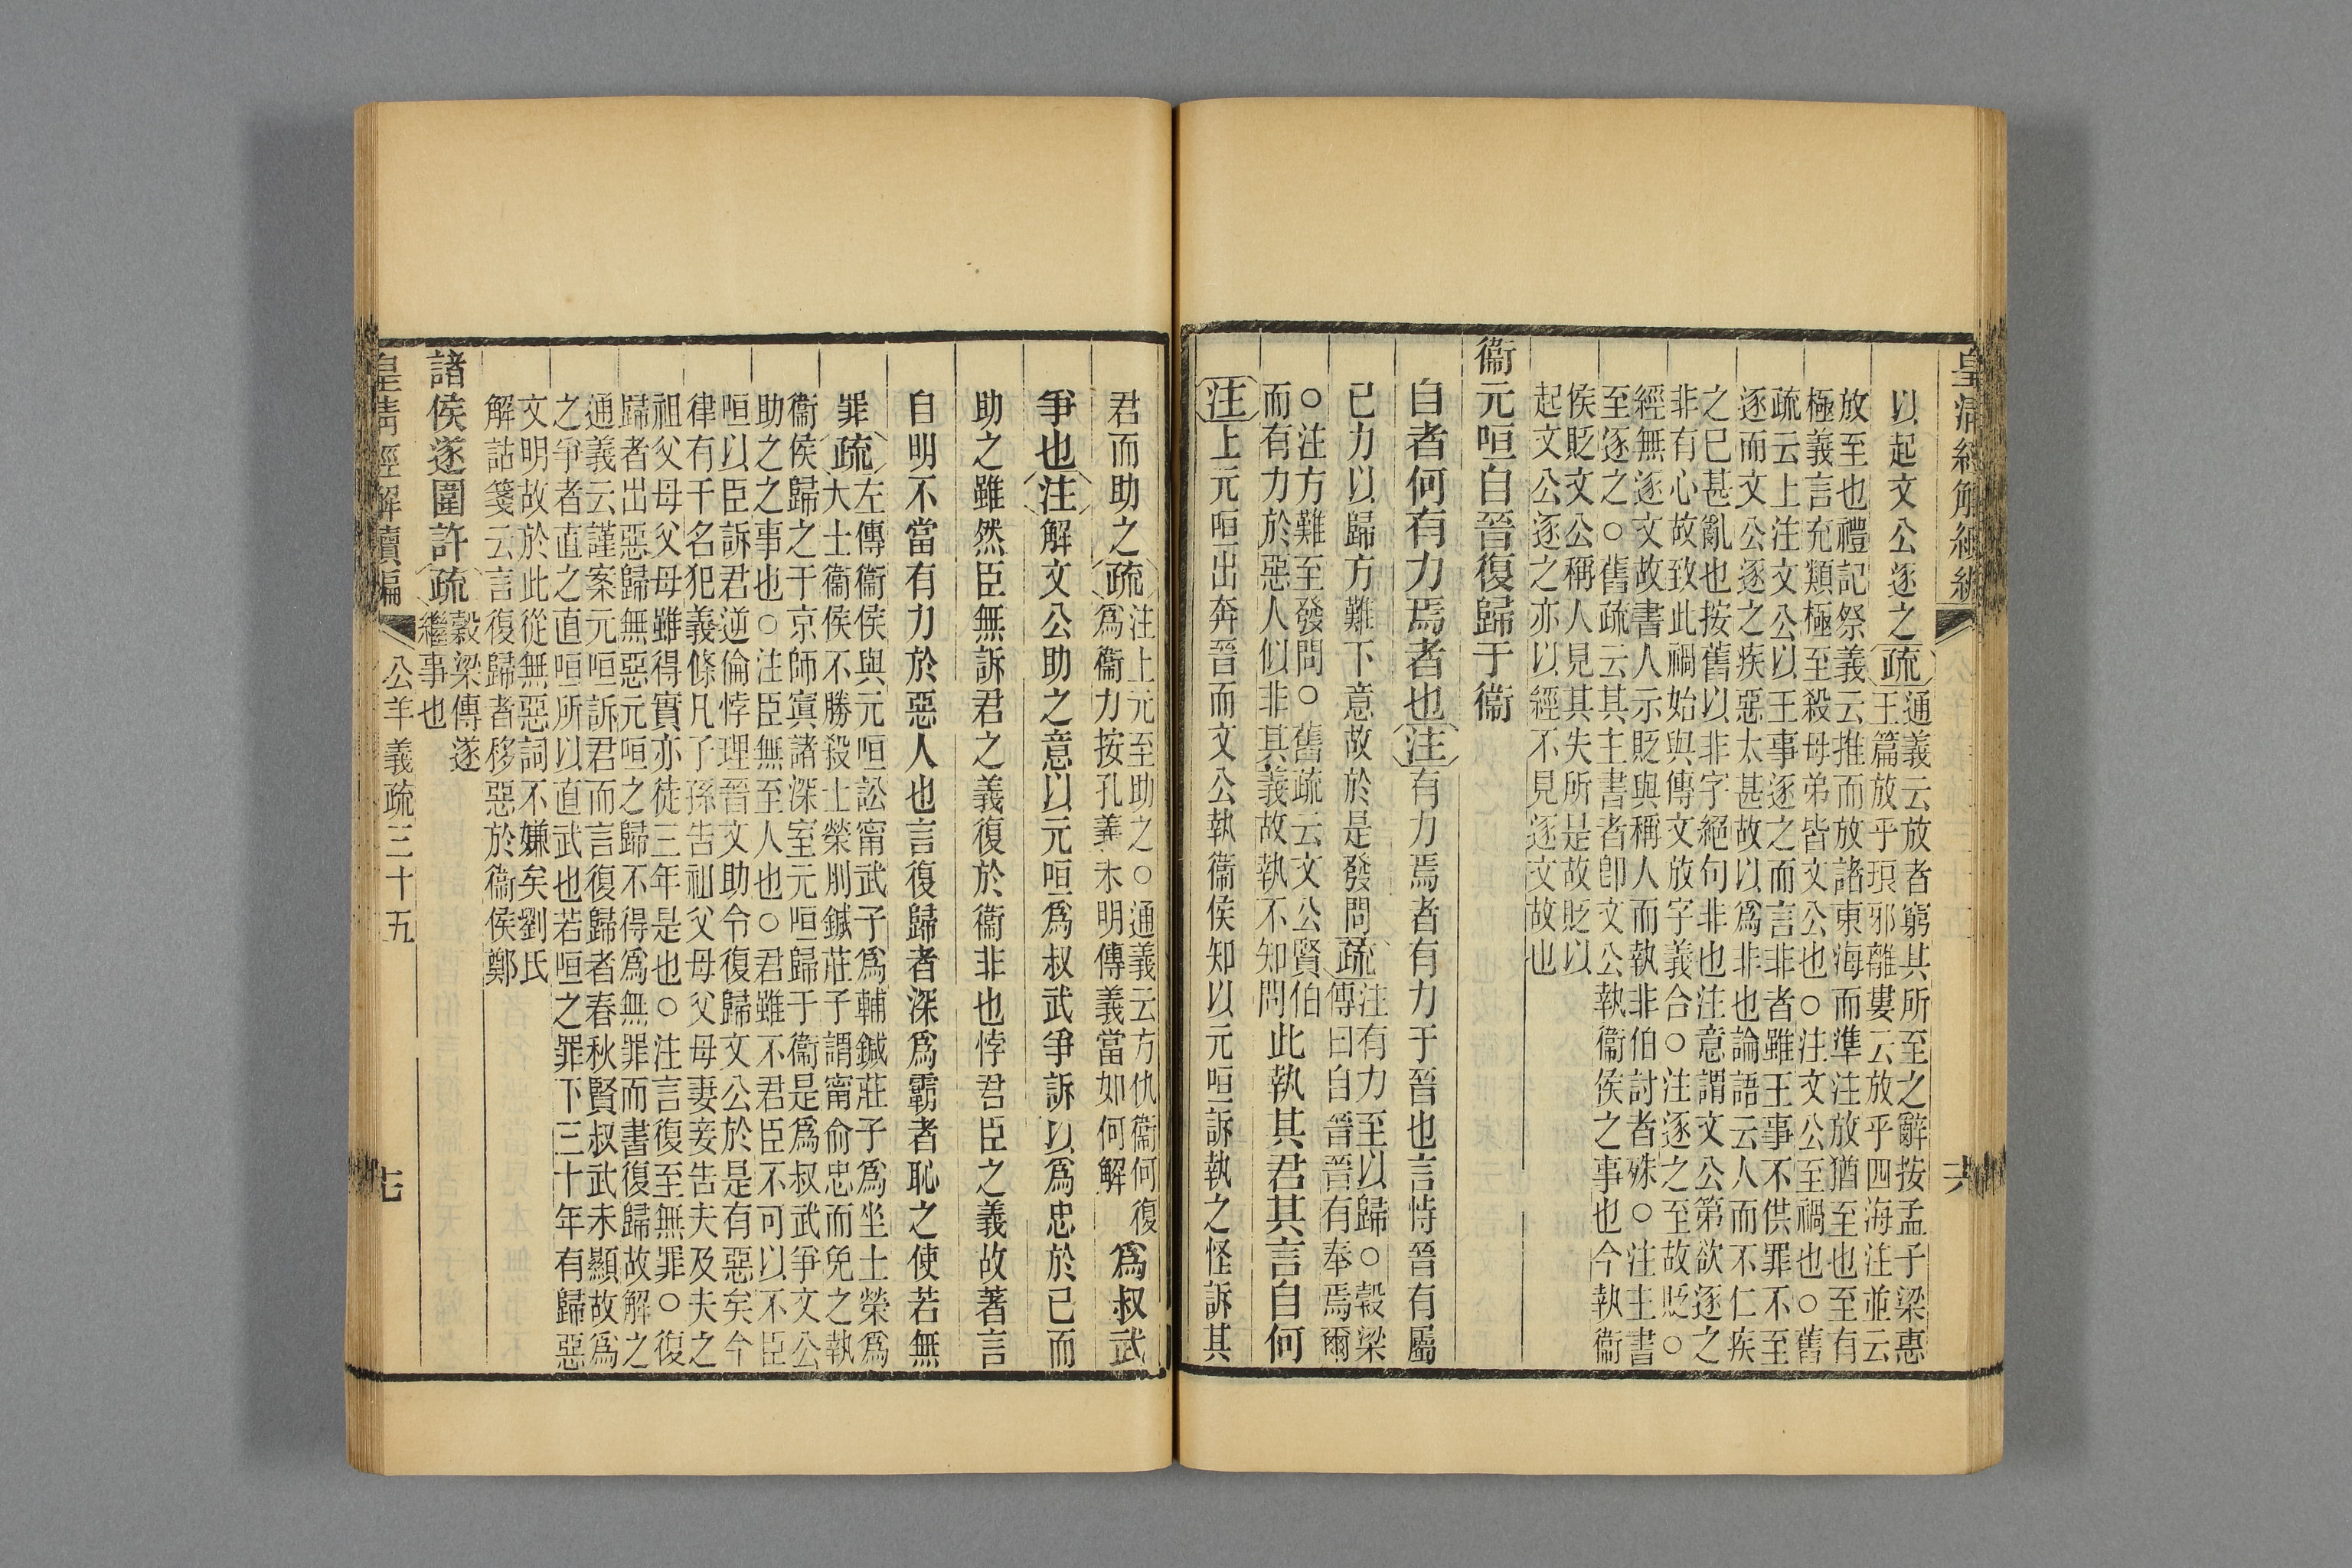 皇清經解續編
以起文公逐之疏通義云放者窮其所至之辭按孟子梁惠
王篇放乎琅邪離婁云放乎四海注並云
放至也禮記祭義云推而放諸東海而準注放猶至也至有
極義言充類極至殺母弟皆文公也○注文公至禍也○舊
疏云上注文公以王事逐之而言非者雖王事不供罪不至
逐而文公逐之疾惡太甚故以爲非也論語云人而不仁疾
之已甚亂也按舊以非字絕句非也注意謂文公第欲逐之
非有心故致此禍始與傳文放字義合○注逐之至故貶○
經無逐文故書人示貶與稱人而執非伯討者殊○注主書
至逐之○舊疏云其主書者卽文公執衞侯之事也今執衞
侯貶文公稱人見其失所是故貶以
起文公逐之亦以經不見逐文故也
衞元咺自晉復歸于衞
自者何有力焉者也注有力焉者有力于晉也言恃晉有屬
已力以歸方難下意故於是發問疏注有力至以歸○穀梁
傳曰自晉晉有奉焉爾
○注方難至發問○舊疏云文公賢伯
而有力於惡人似非其義故執不知問此執其君其言自何
注上元咺出奔晉而文公執衞侯知以元咺訴執之怪訴其
君而助之疏注上元至助之○通義云方仇衞何復
爲衞力按孔義未明傳義當如何解爲叔武
爭也注解文公助之意以元咺爲叔武爭訴以爲忠於已而
助之雖然臣無訴君之義復於衞非也悖君臣之義故著言
自明不當有力於惡人也言復歸者深爲霸者恥之使若無
罪疏左傳衞侯與元咺訟甯武子爲輔鍼莊子爲坐士榮爲
大士衞侯不勝殺士榮刖鍼莊子謂甯俞忠而免之執
衞侯歸之于京師寘諸深室元咺歸于衞是爲叔武爭文公
助之之事也○注臣無至人也○君雖不君臣不可以不臣
咺以臣訴君逆倫悖理晉文助令復歸文公於是有惡矣今
律有干名犯義條凡子孫告祖父母父母妻妾告夫及夫之
祖父母父母雖得實亦徒三年是也○注言復至無罪○復
歸者出惡歸無惡元咺之歸不得爲無罪而書復歸故解之
通義云謹案元咺訴君而言復歸者春秋賢叔武未顯故爲
之爭者直之直咺所以直武也若咺之罪下三十年有歸惡
文明故於此從無惡詞不嫌矣劉氏
解詁箋云言復歸者移惡於衞侯鄭
諸侯遂圍許疏穀梁傳遂
繼事也
皇清經解續編 公羊義疏三十五